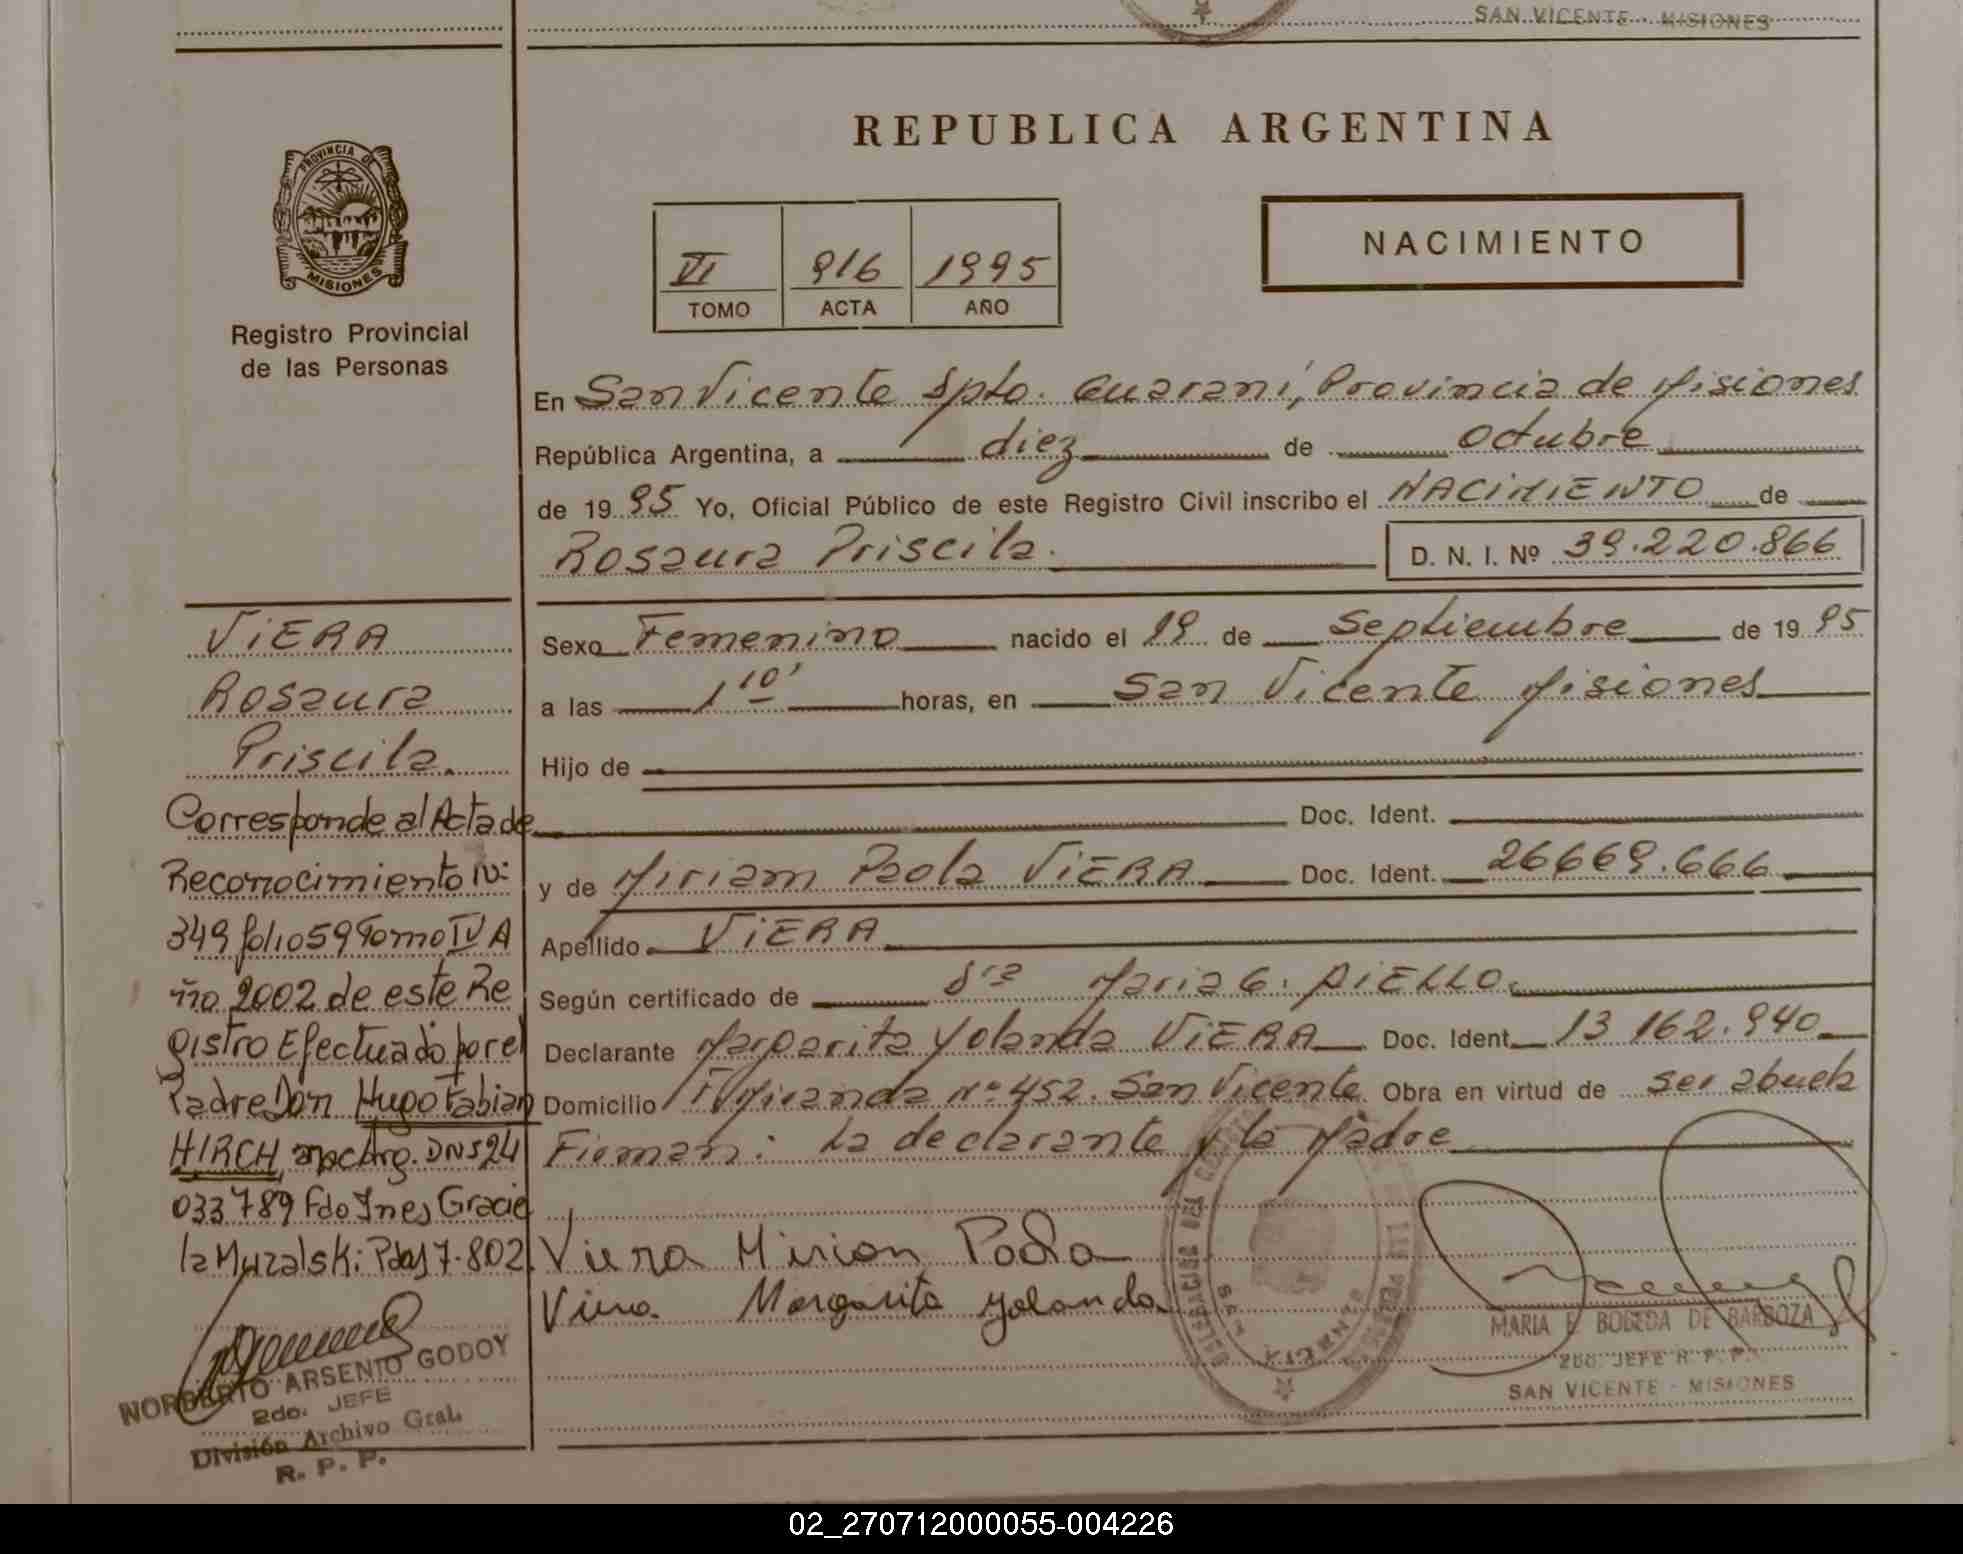 SAN VICENTE - MISIONES
REPUBLICA ARGENTINA
PROVINCIA DE
MISIONES
Registro Provincial
de las Personas
VI 916 1995
TOMO ACTA AÑO
NACIMIENTO
En San Vicente Dpto. Guaraní, Provincia de Misiones
República Argentina, a diez de octubre
de 1995 Yo, Oficial Público de este Registro Civil inscribo el NACIMIENTO de
Rosaura Priscila. D. N. I. Nº 39.220.866
Sexo Femenino nacido el 19 de Septiembre de 1995
a las 1 10' horas, en San Vicente Misiones
Hijo de
Doc. Ident.
y de Miriam Paola VIERA Doc. Ident. 26669.666
Apellido VIERA
Según certificado de Dra Maria G. AIELLO.
Declarante Margarita Yolanda VIERA Doc. Ident. 13 162.940
Domicilio F Miranda Nº 452. San Vicente Obra en virtud de ser abuela
Firman: La declarante y la Madre
Viera Mirian Paola
Viera Margarita Yolanda
MARIA E. BOGEDA DE BARBOZA
2do. JEFE R. P. P.
SAN VICENTE - MISIONES
VIERA
Rosaura
Priscila.
Corresponde al Acta de
Reconocimiento Nº:
349 folio 59 Tomo IV A
ño 2002 de este Re
gistro Efectuado por el
Padre Don Hugo Fabian
HIRCH, nac Arg. DNI 24
033789 Fdo Ines Gracie
la Muzalski Pdas 7.802.
NORBERTO ARSENIO GODOY
2do. JEFE
División Archivo Gral.
R. P. P.
02_270712000055-004226